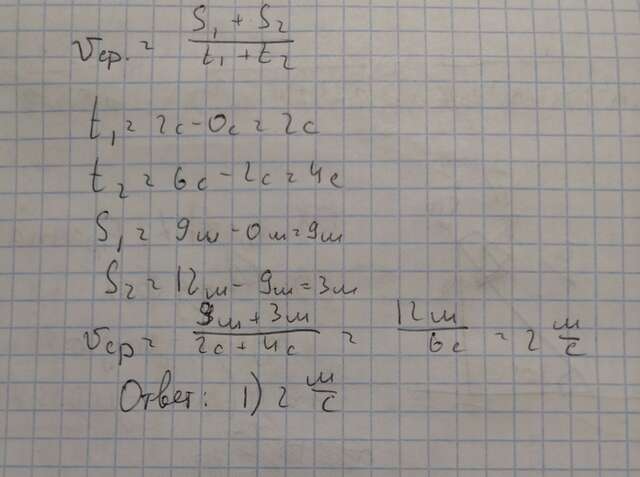 Vср. = (S₁ + S₂)/(t₁ + t₂)
t₁ = 2с - 0с = 2с
t₂ = 6с - 2с = 4с
S₁ = 9м - 0м = 9м
S₂ = 12м - 9м = 3м
Vср = (9м + 3м)/(2с + 4с) = 12м/6с = 2 м/с
Ответ: 1) 2 м/с